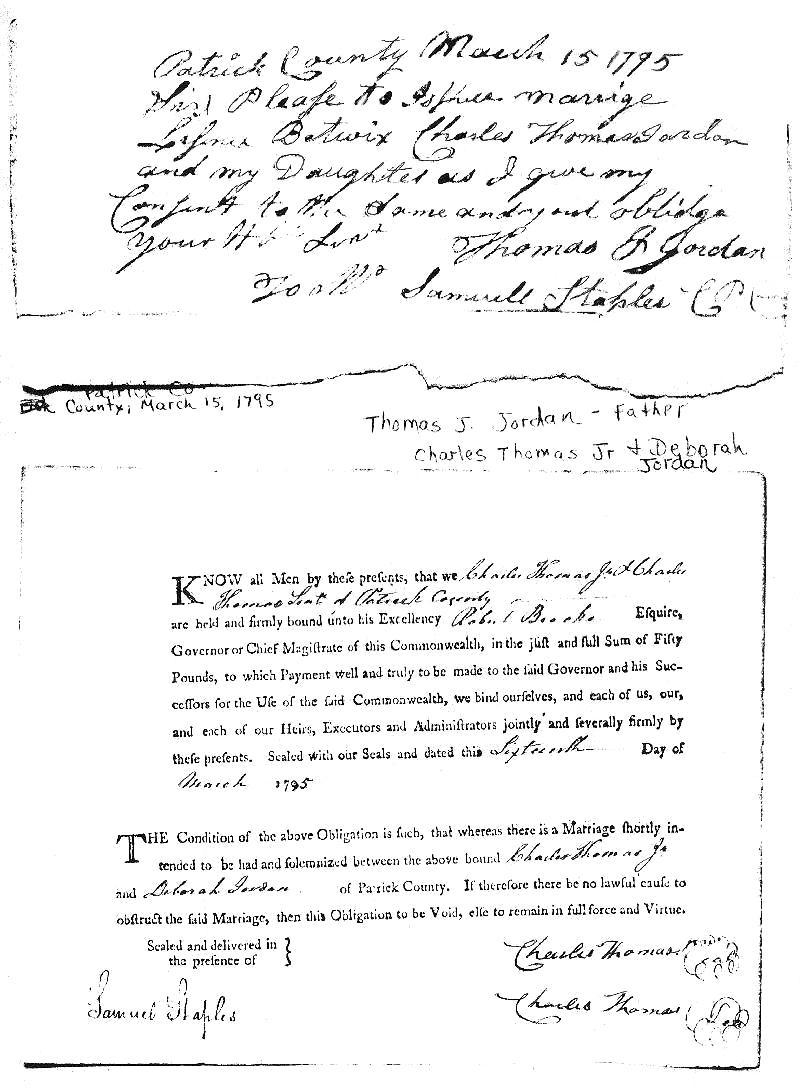 Patrick County March 15 1795
Sir Pleaſe to Iſſhue marrige
Liſence Betwix Charles Thomas Jordan
and my Daughter as I give my
Conſent to the Same and you'd oblidge
Your Hb Servt Thomas J Jordan
To Mr Samuell Staples C P
Patrick Co
County, March 15, 1795
Thomas J. Jordan - Father
Charles Thomas Jr & Deborah
Jordan
KNOW all Men by theſe preſents, that we Charles Thomas Jr & Charles
Thomas Senr of Patrick County
are held and firmly bound unto his Excellency Robert Brooke Eſquire,
Governor or Chief Magiſtrate of this Commonwealth, in the juſt and full Sum of Fifty
Pounds, to which Payment well and truly to be made to the ſaid Governor and his Suc-
ceſſors for the Uſe of the ſaid Commonwealth, we bind ourſelves, and each of us, our,
and each of our Heirs, Executors and Adminiſtrators jointly and ſeverally firmly by
theſe preſents. Sealed with our Seals and dated this Sixteenth Day of
March 1795
THE Condition of the above Obligation is ſuch, that whereas there is a Marriage ſhortly in-
tended to be had and ſolemnized between the above bound Charles Thomas Jr
and Deborah Jordan of Patrick County. If therefore there be no lawful cauſe to
obſtruct the ſaid Marriage, then this Obligation to be Void, elſe to remain in full force and Virtue.
Sealed and delivered in }
the preſence of
Charles Thomas
Samuel Staples
Charles Thomas